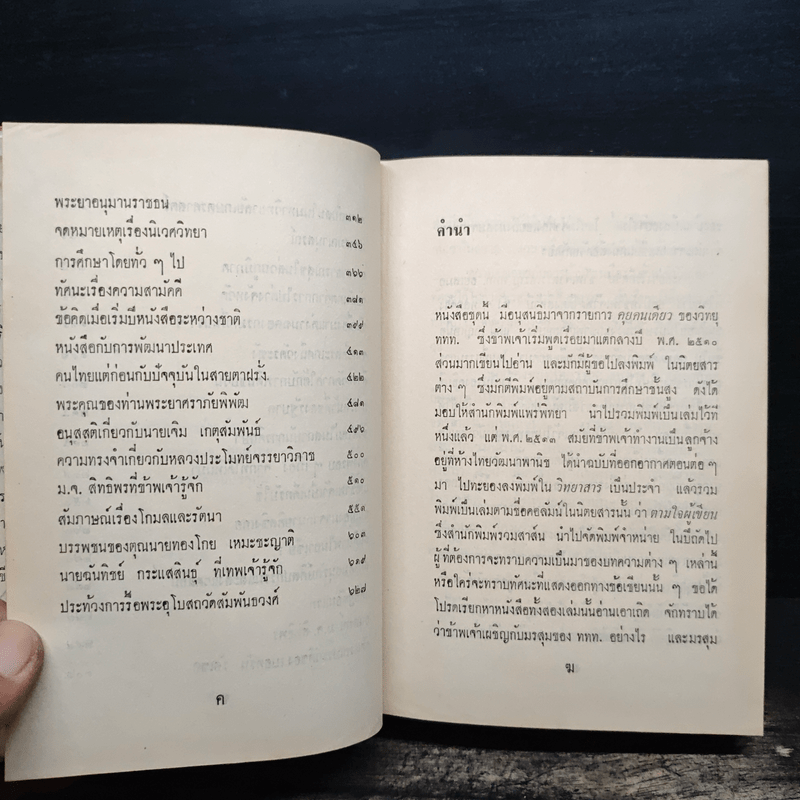 พระยาอนุมานราชธน ๓๑๒
จดหมายเหตุเรื่องนิเวศวิทยา ๓๔๖
การศึกษาโดยทั่ว ๆ ไป ๓๖๖
ทัศนะเรื่องความสามัคคี ๓๘๑
ข้อคิดเมื่อเริ่มปีหนังสือระหว่างชาติ ๓๙๙
หนังสือกับการพัฒนาประเทศ ๔๑๓
คนไทยแต่ก่อนกับปัจจุบันในสายตาฝรั่ง ๔๒๒
พระคุณของท่านพระยาศราภัยพิพัฒ ๔๘๑
อนุสสุติเกี่ยวกับนายเจิม เกตุสัมพันธ์ ๔๙๖
ความทรงจำเกี่ยวกับหลวงประโมทย์จรรยาวิภาช ๕๐๐
ม.จ. สิทธิพรที่ข้าพเจ้ารู้จัก ๕๑๐
สัมภาษณ์เรื่องโกมลและรัตนา ๕๕๑
บรรพชนของตุณนายทองโกย เหมะชะญาติ ๖๐๓
นายฉันทิชย์ กระแสสินธุ์ ที่เทพเจ้ารู้จัก ๖๑๙
ประท้วงการรื้อพระอุโบสถวัดสัมพันธวงศ์ ๖๒๗
ค
คำนำ
หนังสือชุดนี้ มีอนุสนธิมาจากรายการ คุยคนเดียว ของวิทยุ
ททท. ซึ่งข้าพเจ้าเริ่มพูดเรื่อยมาแต่กลางปี พ.ศ. ๒๕๑๐
ส่วนมากเขียนไปอ่าน และมักมีผู้ขอไปลงพิมพ์ ในนิตยสาร
ต่าง ๆ ซึ่งมักตีพิมพ์อยู่ตามสถาบันการศึกษาชั้นสูง ดังได้
มอบให้สำนักพิมพ์แพร่พิทยา นำไปรวมพิมพ์เป็นเล่มไว้ที
หนึ่งแล้ว แต่ พ.ศ. ๒๕๑๓ สมัยที่ข้าพเจ้าทำงานเป็นลูกจ้าง
อยู่ที่ห้างไทยวัฒนาพานิช ได้นำฉบับที่ออกอากาศตอนต่อ ๆ
มา ไปทะยองลงพิมพ์ใน วิทยาสาร เป็นประจำ แล้วรวม
พิมพ์เป็นเล่มตามชื่อคอลัมน์ในนิตยสารนั้น ว่า ตามใจผู้เขียน
ซึ่งสำนักพิมพ์รวมสาส์น นำไปจัดพิมพ์จำหน่าย ในปีถัดไป
ผู้ที่ต้องการจะทราบความเป็นมาของบทความต่าง ๆ เหล่านี้
หรือใคร่จะทราบทัศนะที่แสดงออกทางข้อเขียนนั้น ๆ ขอได้
โปรดเรียกหาหนังสือทั้งสองเล่มนั้นอ่านเอาเถิด จักทราบได้
ว่าข้าพเจ้าเผชิญกับมรสุมของ ททท. อย่างไร และมรสุม
ฆ